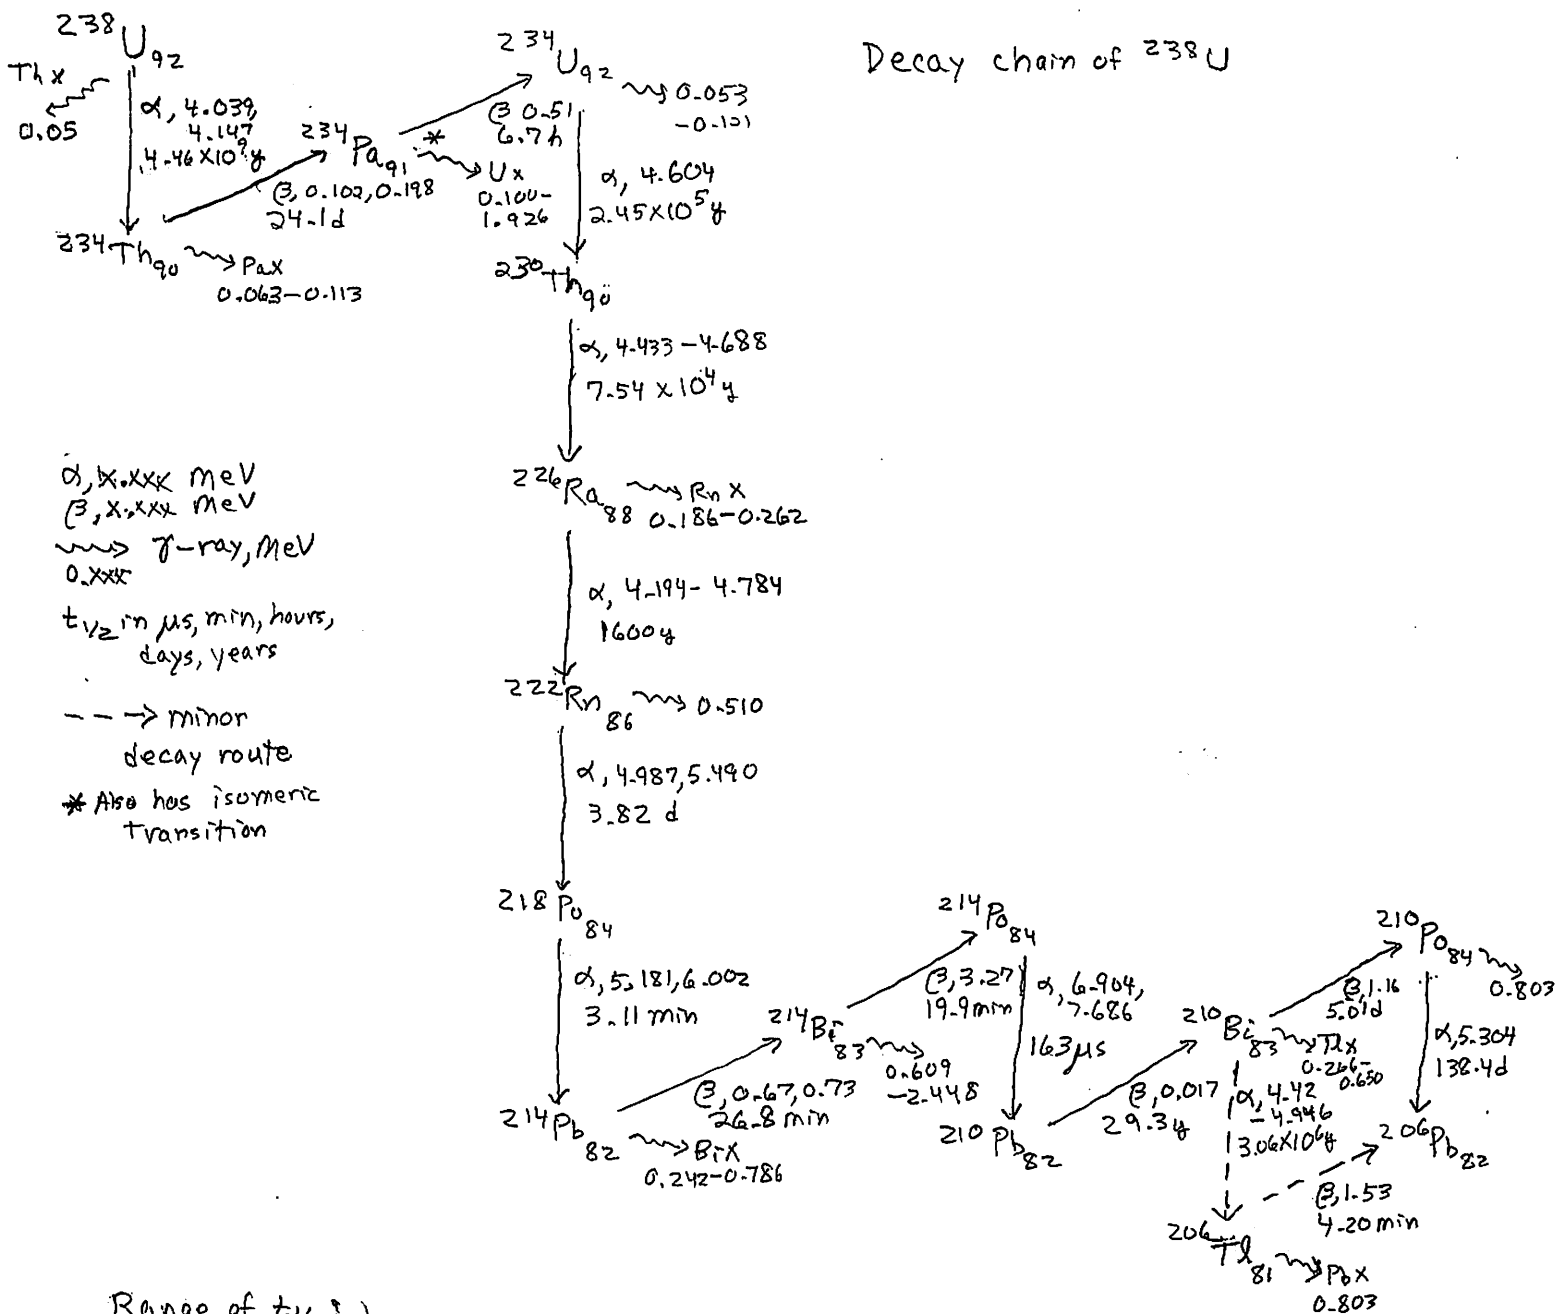 Decay chain of ²³⁸U
²³⁸U₉₂
Th x
0.05
α, 4.039,
4.147
4.46×10⁹y
²³⁴Th₉₀
Pax
0.063–0.113
β, 0.102, 0.198
24.1d
²³⁴Pa₉₁
*
Ux
0.100–
1.926
β 0.51
6.7h
²³⁴U₉₂
0.053
–0.121
α, 4.604
2.45×10⁵y
²³⁰Th₉₀
α, 4.433–4.688
7.54×10⁴y
²²⁶Ra₈₈
Rn X
0.186–0.262
α, 4.194–4.784
1600y
²²²Rn₈₆
0.510
α, 4.987, 5.490
3.82 d
²¹⁸Po₈₄
α, 5.181, 6.002
3.11 min
²¹⁴Pb₈₂
BiX
0.242–0.786
β, 0.67, 0.73
26.8 min
²¹⁴Bi₈₃
0.609
–2.448
β, 3.27
19.9min
²¹⁴Po₈₄
α, 6.904,
7.686
163μs
²¹⁰Pb₈₂
β, 0.017
29.3y
²¹⁰Bi₈₃
Tlx
0.266–
0.650
β, 1.16
5.01d
²¹⁰Po₈₄
0.803
α, 5.304
138.4d
²⁰⁶Pb₈₂
α, 4.42
–4.946
3.06×10⁶y
²⁰⁶Tl₈₁
PbX
0.803
β, 1.53
4.20min
α, x.xxx meV
β, x.xxx meV
γ-ray, meV
0.xxx
t₁/₂ in μs, min, hours,
days, years
minor
decay route
* Also has isomeric
transition
Range of